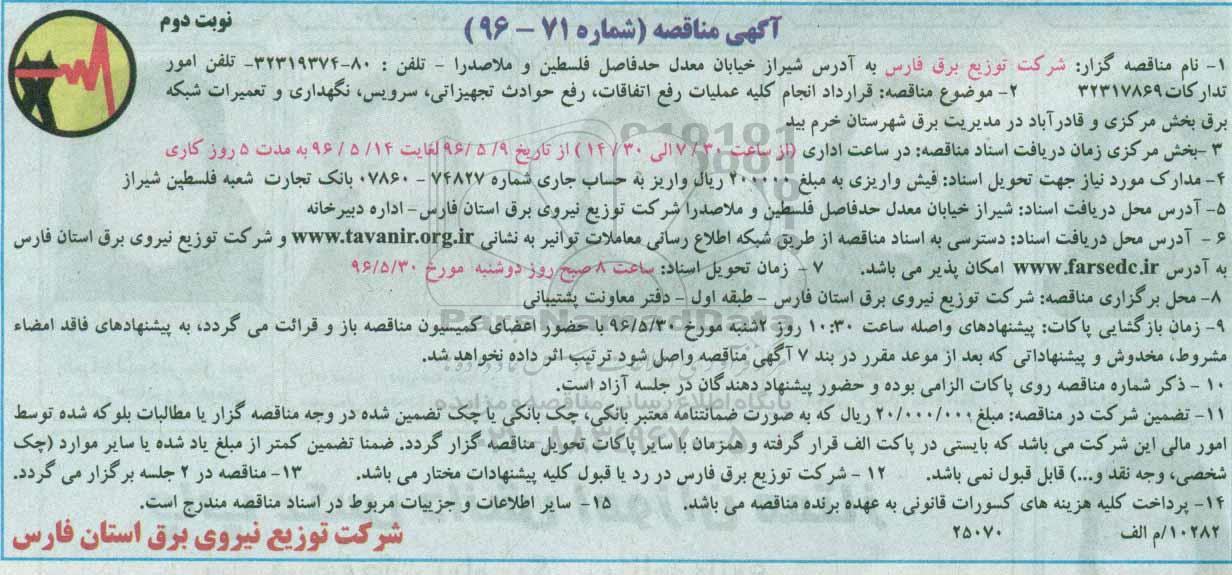 آگهی مناقصه (شماره ۷۱ - ۹۶)
نوبت دوم
۱- نام مناقصه گزار: شرکت توزیع برق فارس به آدرس شیراز خیابان معدل حدفاصل فلسطین و ملاصدرا - تلفن : ۸۰-۳۲۳۱۹۳۷۴- تلفن امور
تدارکات۳۲۳۱۷۸۶۹ ۲- موضوع مناقصه: قرارداد انجام کلیه عملیات رفع اتفاقات، رفع حوادث تجهیزاتی، سرویس، نگهداری و تعمیرات شبکه
برق بخش مرکزی و قادرآباد در مدیریت برق شهرستان خرم بید
۳ -بخش مرکزی زمان دریافت اسناد مناقصه: در ساعت اداری (از ساعت ۷/۳۰ الی ۱۴/۳۰) از تاریخ ۹/ ۵ /۹۶ لغایت ۱۴/ ۵ / ۹۶ به مدت ۵ روز کاری
۴- مدارک مورد نیاز جهت تحویل اسناد: فیش واریزی به مبلغ ۲۰۰۰۰۰۰ ریال واریز به حساب جاری شماره ۷۴۸۲۷ - ۰۷۸۶۰ بانک تجارت شعبه فلسطین شیراز
۵- آدرس محل دریافت اسناد: شیراز خیابان معدل حدفاصل فلسطین و ملاصدرا شرکت توزیع نیروی برق استان فارس- اداره دبیرخانه
۶ - آدرس محل دریافت اسناد: دسترسی به اسناد مناقصه از طریق شبکه اطلاع رسانی معاملات توانیر به نشانی www.tavanir.org.ir و شرکت توزیع نیروی برق استان فارس
به آدرس www.farsedc.ir امکان پذیر می باشد. ۷ - زمان تحویل اسناد: ساعت ۸ صبح روز دوشنبه مورخ ۹۶/۵/۳۰
۸- محل برگزاری مناقصه: شرکت توزیع نیروی برق استان فارس - طبقه اول - دفتر معاونت پشتیبانی
ParsNamadData
۹- زمان بازگشایی پاکات: پیشنهادهای واصله ساعت ۱۰:۳۰ روز ۲شنبه مورخ ۹۶/۵/۳۰ با حضور اعضای کمیسیون مناقصه باز و قرائت می گردد، به پیشنهادهای فاقد امضاء
مشروط، مخدوش و پیشنهاداتی که بعد از موعد مقرر در بند ۷ آگهی مناقصه واصل شود ترتیب اثر داده نخواهد شد.
۱۰ - ذکر شماره مناقصه روی پاکات الزامی بوده و حضور پیشنهاد دهندگان در جلسه آزاد است.
پایگاه اطلاع رسانی مناقصه و مزایده
۱۱- تضمین شرکت در مناقصه: مبلغ ۲۰/۰۰۰/۰۰۰ ریال که به صورت ضمانتنامه معتبر بانکی، چک بانکی یا چک تضمین شده در وجه مناقصه گزار یا مطالبات بلوکه شده توسط
امور مالی این شرکت می باشد که بایستی در پاکت الف قرار گرفته و همزمان با سایر پاکات تحویل مناقصه گزار گردد. ضمنا تضمین کمتر از مبلغ یاد شده یا سایر موارد (چک
شخصی، وجه نقد و...) قابل قبول نمی باشد. ۱۲ - شرکت توزیع برق فارس در رد یا قبول کلیه پیشنهادات مختار می باشد. ۱۳- مناقصه در ۲ جلسه برگزار می گردد.
۱۴- پرداخت کلیه هزینه های کسورات قانونی به عهده برنده مناقصه می باشد. ۱۵- سایر اطلاعات و جزییات مربوط در اسناد مناقصه مندرج است.
۱۰۲۸۲/م الف ۲۵۰۷۰
شرکت توزیع نیروی برق استان فارس